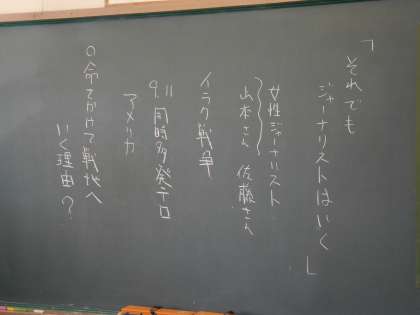 「それでも
ジャーナリストはいく」
女性ジャーナリスト
山本さん 佐藤さん
イラク戦争
9.11 同時多発テロ
アメリカ
○命をかけて戦地へ
いく理由？